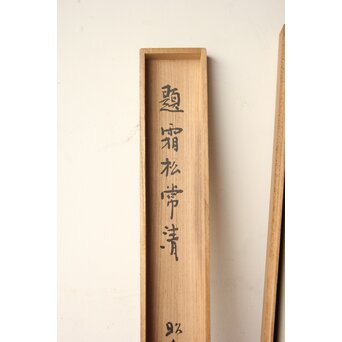 題霜松常清
昭